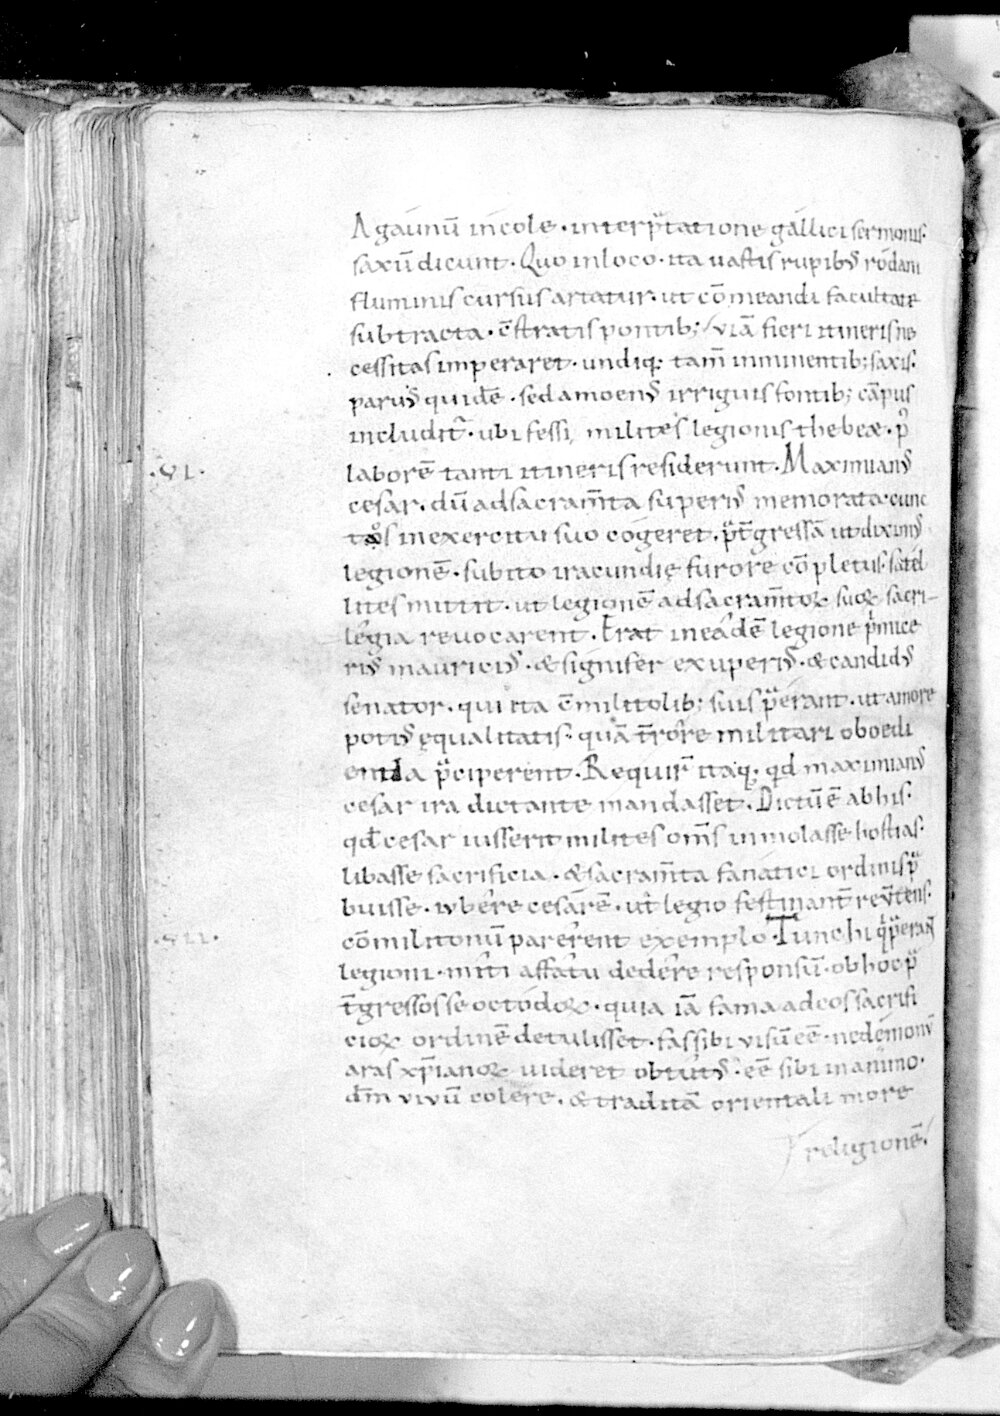 Agaunū incole · interp̄tatione gallici sermonis·
saxū dicunt · Quo in loco · ita uastis rupib; rodani
fluminis cursus artatur · ut cōmeandi facultate
subtracta · c̄stratis pontib; / uiā fieri itineris ne
cessitas imperaret · undiq; tam̄ inminentib; saxis·
paruꝰ quidē · sed amoenꝰ irriguis fontib; cāpus
includit᷑ · ubi fessi milites legionis thebeæ · p̄
·VI· laborē tanti itineris residerunt · Maximianꝰ
cesar · dū ad sacram̄ta superiꝰ memorata · cunc
tos in exercitu suo cogeret · p̄t̄gressā ut diximꝰ
legionē · subito iracundię furore cōpletus · satel
lites mittit · ut legionē ad sacram̄toꝝ suoꝝ sacri-
legia reuocarent · Erat in eadē legione p̄mice
riꝰ mauriciꝰ · & signifer exuperiꝰ · & candidꝰ
senator · qui ita c̄militoīb; suis p̄erant · ut amore
potiꝰ ęqualitatis · quā t̄rore militari oboedi
enda p̄ciperent · Requir᷑ itaq; qd maximianꝰ
cesar ira dictante mandasset · Dictū ē ab his ·
qđ cesar iusserit milites om̄s inmolasse hostias·
libasse sacrificia · & sacram̄ta fanatici ordinis p̄
buisse · iubere cesarē · ut legio festinant̄ reūtens·
·VII· cōmilitonū parerent exemplo · Tunc hi q̄ p̄erant
legioni · miti affatu dedere responsū · ob hoc p̄
t̄gressos se octodoꝝ · quia iā fama ad eos sacrifi
cioꝝ ordinē detulisset · fas sibi uisū eē · ne demonū
aras xp̄ianoꝝ uideret obtutꝰ · eē sibi in animo·
dm̄ uiuū colere · & traditā orientali more
religionē/